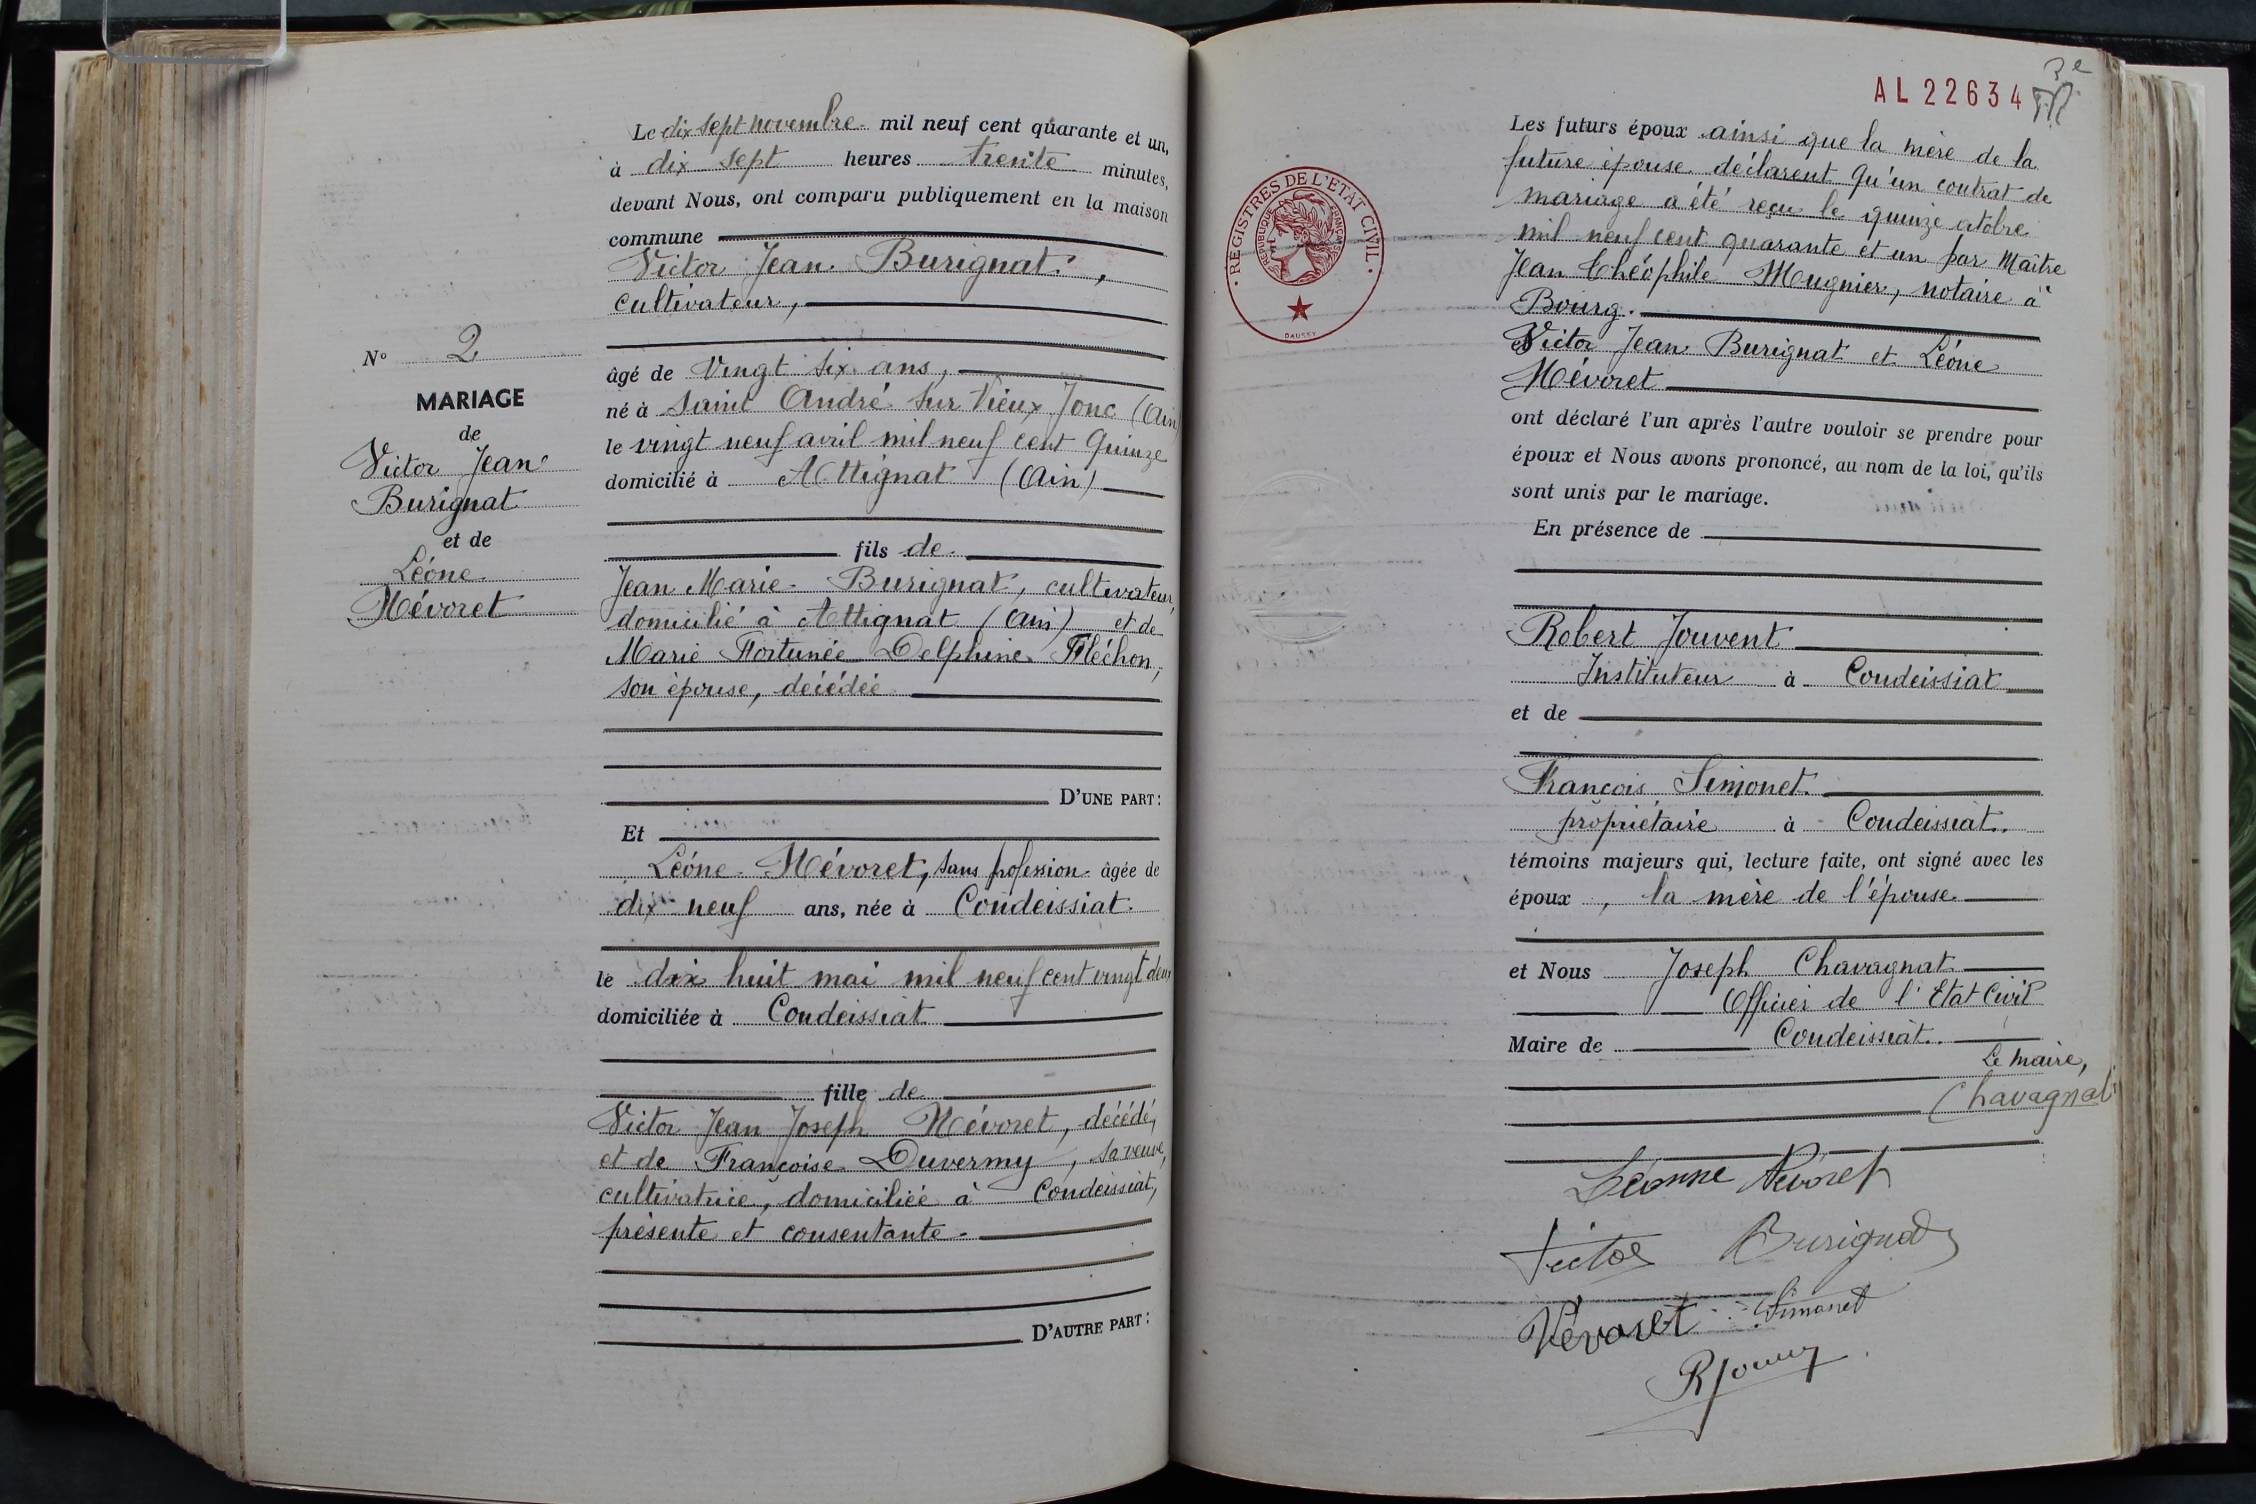 Le dix sept novembre mil neuf cent quarante et un,
à dix sept heures trente minutes,
devant Nous, ont comparu publiquement en la maison
commune
Victor Jean Burignat,
cultivateur,
âgé de vingt six ans,
né à Saint André sur Vieux Jonc (Ain)
le vingt neuf avril mil neuf cent quinze
domicilié à Attignat (Ain)
fils de
Jean Marie Burignat, cultivateur,
domicilié à Attignat (Ain) et de
Marie Fortunée Delphine Fléchon,
son épouse, décédée
D'UNE PART:
Et
Léone Névoret, sans profession âgée de
dix neuf ans, née à Condeissiat
le dix huit mai mil neuf cent vingt deux
domiciliée à Condeissiat
fille de
Victor Jean Joseph Névoret, décédé,
et de Françoise Duvermy, sa veuve,
cultivatrice, domiciliée à Condeissiat,
présente et consentante
D'AUTRE PART:
No 2
MARIAGE
de
Victor Jean
Burignat
et de
Léone
Névoret
AL 22634
REGISTRES DE L'ETAT CIVIL
REPUBLIQUE FRANÇAISE
DAUSSY
Les futurs époux ainsi que la mère de la
future épouse déclarent qu'un contrat de
mariage a été reçu le quinze octobre
mil neuf cent quarante et un par Maître
Jean Théophile Mugnier, notaire à
Bourg.
Victor Jean Burignat et Léone
Névoret
ont déclaré l'un après l'autre vouloir se prendre pour
époux et Nous avons prononcé, au nom de la loi, qu'ils
sont unis par le mariage.
En présence de
Robert Jouvent
Instituteur à Condeissiat
et de
François Simonet
propriétaire à Condeissiat.
témoins majeurs qui, lecture faite, ont signé avec les
époux, la mère de l'épouse
et Nous Joseph Chavagnat
Officier de l'Etat Civil
Maire de Condeissiat.
Le Maire,
Chavagnat
Léonne Névoret
Victor Burignat
Névoret Simonet